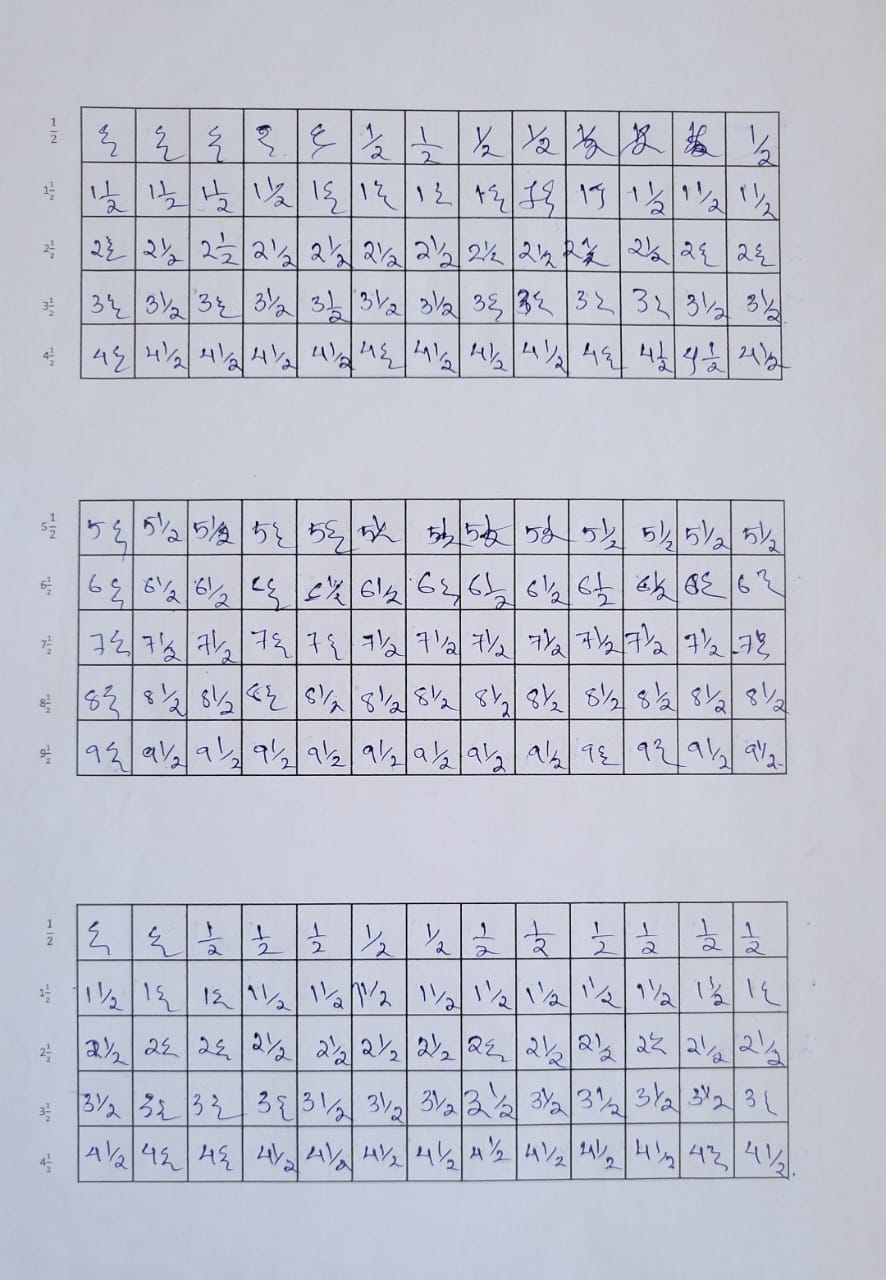 ½ ξ ξ ξ ξ ξ ½ ½ ½ ½ ½ ½ ½ ½
1½ 1½ 1½ 1½ 1½ 1ξ 1ξ 1ξ 1ξ 1ξ 1ξ 1½ 1½ 1½
2½ 2ξ 2½ 2½ 2½ 2½ 2½ 2½ 2½ 2½ 2½ 2½ 2ξ 2ξ
3½ 3ξ 3½ 3ξ 3½ 3½ 3½ 3½ 3ξ 3ξ 3ξ 3ξ 3½ 3½
4½ 4ξ 4½ 4½ 4½ 4½ 4ξ 4½ 4½ 4½ 4ξ 4½ 4½ 4½
5½ 5ξ 5½ 5½ 5ξ 5ξ 5½ 5½ 5½ 5½ 5½ 5½ 5½ 5½
6½ 6ξ 6½ 6½ 6ξ 6½ 6½ 6ξ 6½ 6½ 6½ 6½ 6ξ 6ξ
7½ 7ξ 7½ 7½ 7ξ 7ξ 7½ 7½ 7½ 7½ 7½ 7½ 7½ 7ξ
8½ 8ξ 8½ 8½ 8ξ 8½ 8½ 8½ 8½ 8½ 8½ 8½ 8½ 8½
9½ 9ξ 9½ 9½ 9½ 9½ 9½ 9½ 9½ 9½ 9ξ 9ξ 9½ 9½
½ ξ ξ ½ ½ ½ ½ ½ ½ ½ ½ ½ ½ ½
1½ 1½ 1ξ 1ξ 1½ 1½ 1½ 1½ 1½ 1½ 1½ 1½ 1½ 1ξ
2½ 2½ 2ξ 2ξ 2½ 2½ 2½ 2½ 2ξ 2½ 2½ 2ξ 2½ 2½
3½ 3½ 3ξ 3ξ 3ξ 3½ 3½ 3½ 3½ 3½ 3½ 3½ 3½ 3ξ
4½ 4½ 4ξ 4ξ 4½ 4½ 4½ 4½ 4½ 4½ 4½ 4½ 4ξ 4½